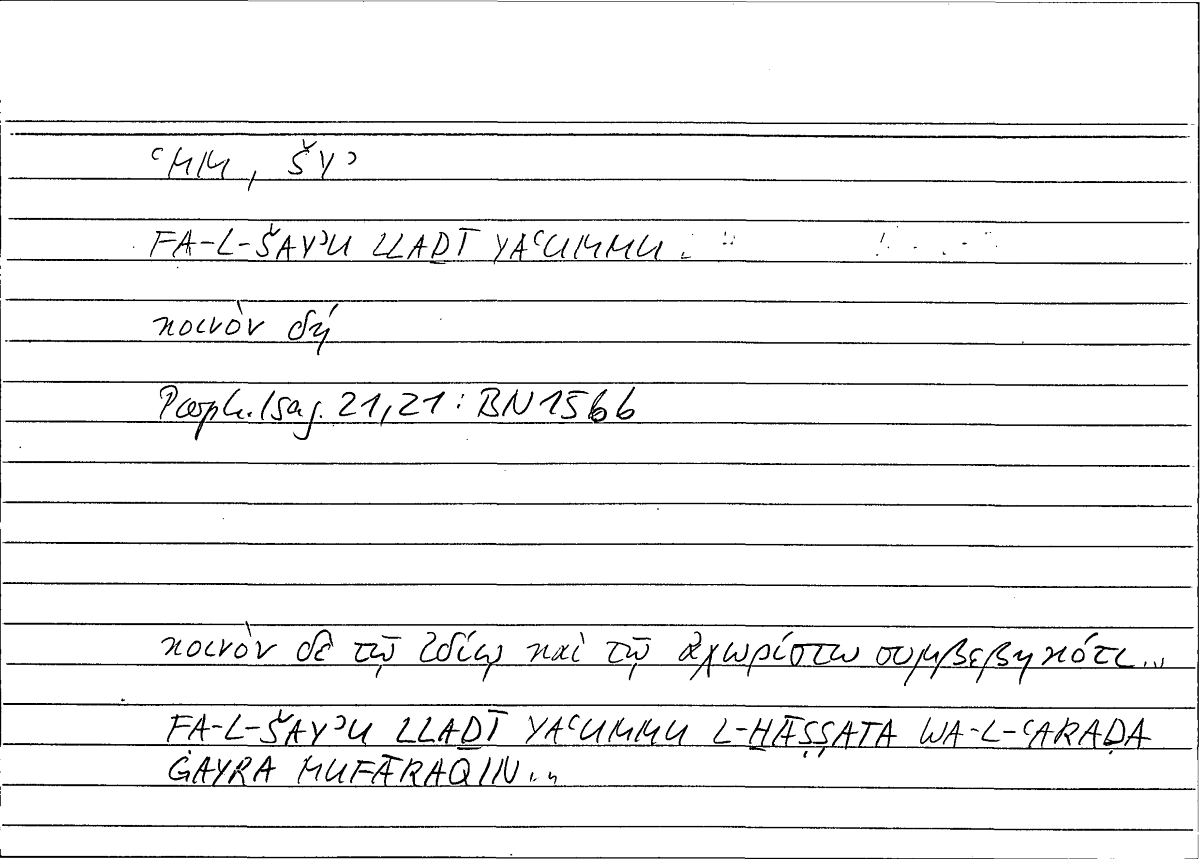 ʿMM, ŠYʾ
FA-L-ŠAYʾU LLAḎĪ YAʿUMMU
κοινὸν δή
Porph. Isag. 21,21 : BN 156b
κοινὸν δὲ τῷ ἰδίῳ καὶ τῷ ἀχωρίστῳ συμβεβηκότι...
FA-L-ŠAYʾU LLAḎĪ YAʿUMMU L-ḪĀṢṢATA WA-L-ʿARAḌA
ĠAYRA MUFĀRAQIN...